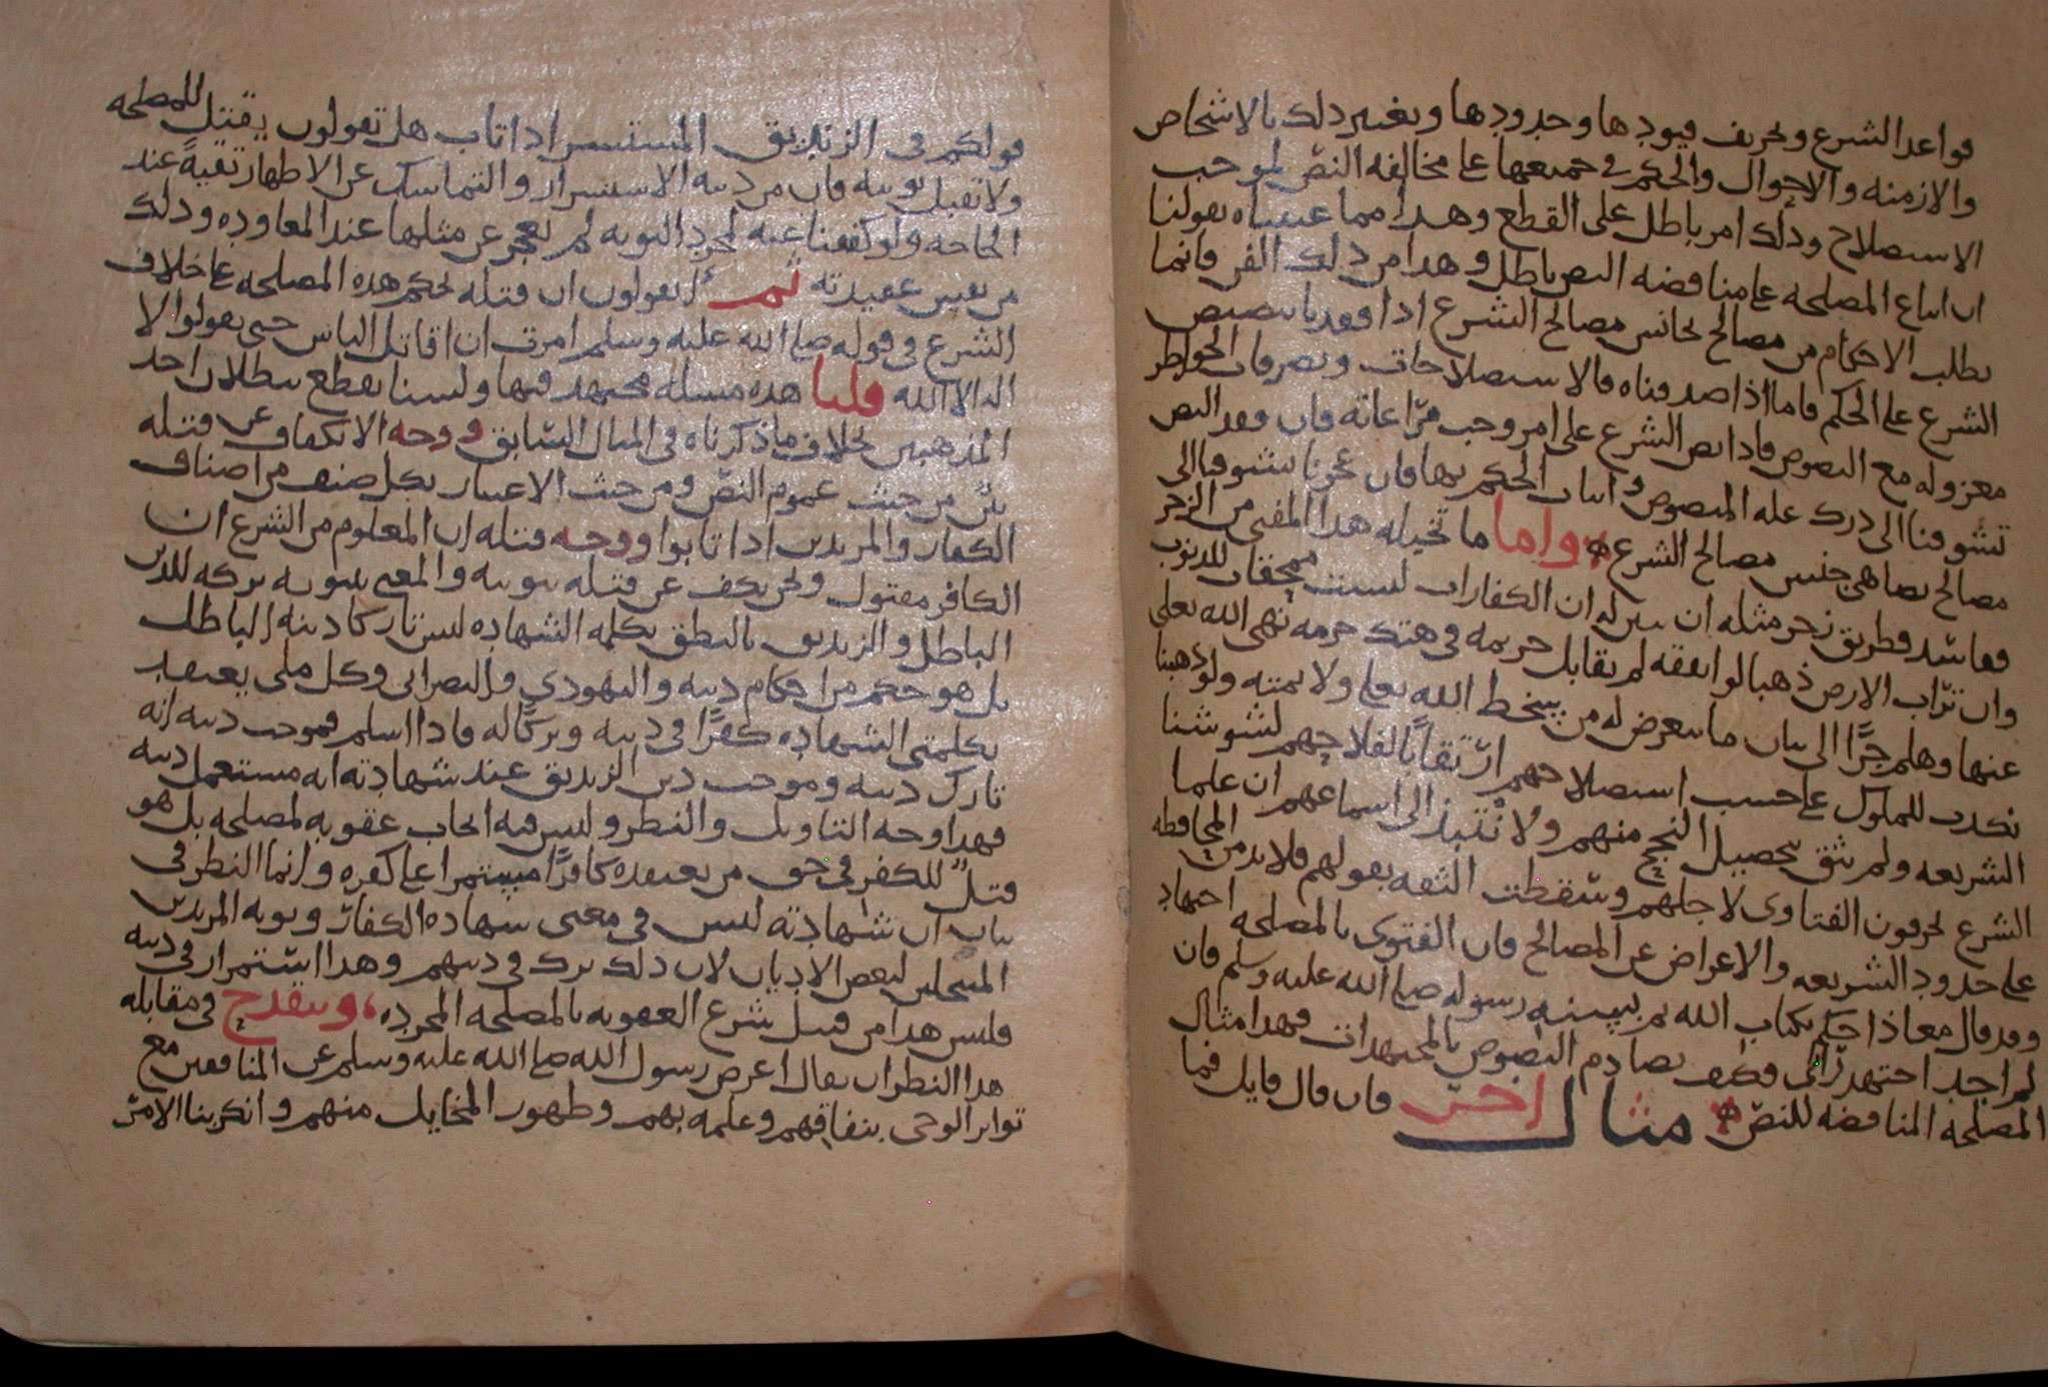 قواعد الشرع وتحريف قيودها وحدودها وتغيير ذلك بالاشخاص
والازمنه والاحوال والحكم في جميعها على مخالفه النصّ لموجب
الاستصلاح وذلك امر باطل على القطع وهذا مما عنيناه بقولنا
ان اتباع المصلحه على مناقضه النص باطل وهذا من ذلك الفن فانما
نطلب الاحكام من مصالح تجانس مصالح الشرع اذا فقدنا تنصيص
الشرع على الحكم فاما اذا صدفناه فالاستصلاحات وتصرفات الخواطر
معزوله مع النصوص فاذا نص الشرع على امر وجب مرّاعاته فان فقد النص
تشوفنا الى درك عله المنصوص واثبات الحكم بها فان عجزنا تشوفنا الى
مصالح تضاهي جنس مصالح الشرع واما ما تخيله هذا المفتي من الزجر
ففاسد فطريق زجر مثله ان يبين له ان الكفارات ليست ممحقات للذنوب
وان ترّاب الارض ذهبا لو انفقه لم يقابل جريمه في هتك حرمه نهى الله تعلى
عنها وهلم جرًّا الى بيان ما يتعرض له من سخط الله تعلى ولا يمته ولو ذهبنا
نكذب للملوك على حسب استصلاحهم ارّتقابًا لفلاحهم لشوشنا
الشريعه ولم نثق بتحصيل النجح منهم ولا نْتبذ الى اسماعهم ان علما
الشرع يحرفون الفتاوى لاجلهم وسقطت الثقه بقولهم فلابد من المحافظه
على حدود الشريعه والاعراض عن المصالح فان الفتوى بالمصلحه اجتهاد
وقد قال معاذ احكم بكتاب الله ثم بسنه رسوله صلى الله عليه وسلم فان
لم اجد اجتهد رّائي فكيف تصادم النصوص بالمجتهدات فهذا مثال
المصلحه المناقضه للنصّ مثال اخر فان قال قايل فما
قولكم في الزنديق المتستسر اذا تاب هل تقولون يقتل للمصلحه
ولا تقبل توبته فان من دينه الاستسرار والتماسك عن الاظهار تقيهً عند
الحاجه ولو كففنا عنه لمجرد التوبه لم نعجز عن مثلها عند المعاوده وذلك
من نفيس عقيدته ثم أتقولون ان قتله بحكم هذه المصلحه على خلاف
الشرع في قوله صلى الله عليه وسلم امرت ان اقاتل الناس حتى يقولوا لا
اله الا الله قلنا هذه مسله مجتهد فيها ولسنا نقطع ببطلان احد
المذهبين بخلاف ما ذكرناه في المثال السّابق ووجه الانكفاف عن قتله
بيّن من حيث عموم النصّ ومن حيث الاعتبار بكل صنف من اصناف
الكفار والمرتدين اذا تابوا ووجه قتله ان المعلوم من الشرع ان
الكافر مقتول ونحن نكف عن قتله بتوبته والمعني بتوبته تركه للدين
الباطل والزنديق بالنطق بكلمه الشهاده ليس تاركا دينه الباطل
بل هو حكم من احكام دينه واليهودي والنصراني وكل ملي يعتقد
بكلمتي الشهاده كفرًا في دينه وتركًا له فاذا اسلم فموجب دينه انه
تارك دينه وموجب دين الزنديق عند شهادته انه مستعمل دينه
فهذا وجه التاويل والنظر وليس فيه ايجاب عقوبه لمصلحه بل هو
قتلٌ للكفر في حق من يعتقده كافرًا مستمرا على كفره وانما النظر في
بيان ان شهادته ليس في معنى شهاده الكفار وتوبه المرتدين
المنتحلين لبعض الاديان لان ذلك ترك في دينهم وهذا استمرار في دينه
فليس هذا من قبيل شرع العقوبه بالمصلحه المجرده، وينقدح في مقابله
هذا النظر ان يقال اعرض رسول الله صلى الله عليه وسلم عن المنافقين مع
تواتر الوحي بنفاقهم وعلمه بهم وظهور المخايل منهم وانكرّ بنا الامرّ